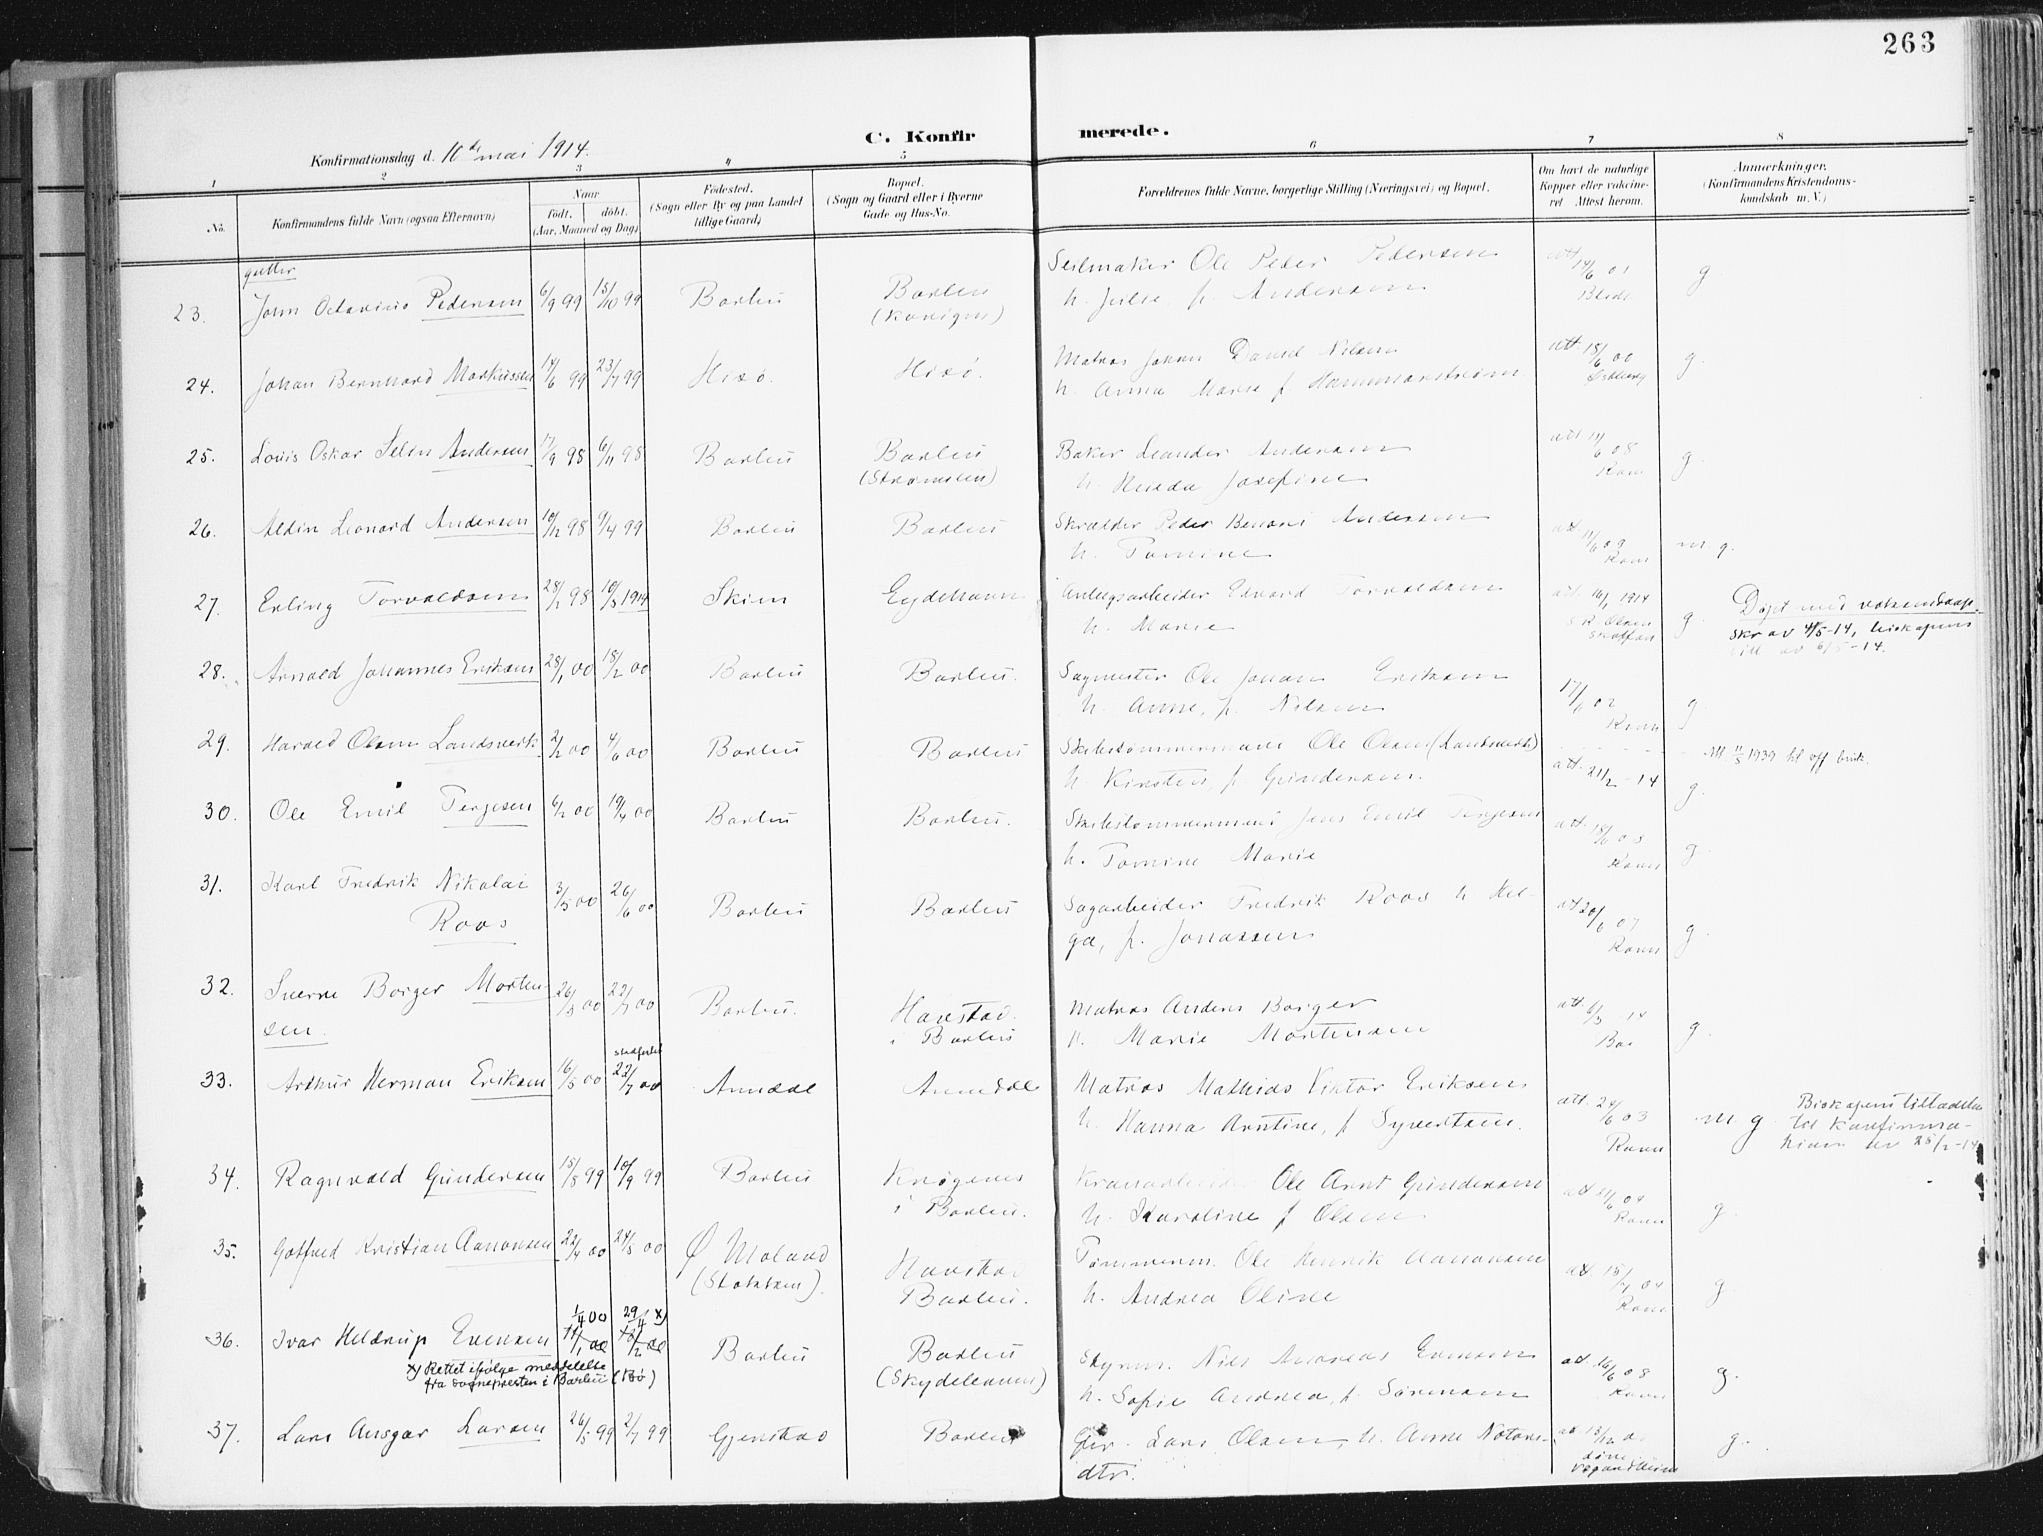 263
C. Konfir merede.
Konfirmationsdag d. 10de mai 1914.
1 2 3 4 5 6 7 8
No.
Konfirmandens fulde Navn (ogsaa Efternavn)
Naar
født. døbt.
(Aar, Maaned og Dag)
Fødested.
(Sogn eller By og paa Landet
tillige Gaard)
Bopæl.
(Sogn og Gaard eller i Byerne
Gade og Hus-No.
Forældrenes fulde Navne, borgerlige Stilling (Næringsvei) og Bopæl.
Om havt de naturlige
Kopper eller vaccine-
ret Attest herom.
Anmærkninger.
(Konfirmandens Kristendoms-
kundskab m. V.)
gutter
23. John Octavius Pedersen 6/9 99 15/10 99 Barbu Barbu Seilmaker Ole Peder Pedersen att 14/6 01 g
h. f. Andersen
24. Johan Bernhard Markussen 14/6 99 23/7 99 Hisø. Hisø. Matros Johan David Nilsen att. 18/6 00 g.
h. Anna Marie f. Hammarstrøm
25. Louis Oskar Selin Andersen 17/9 98 6/11 98 Barbu Barbu Baker Leander Andersen att 11/6 08 Ravn g.
h. Josefine
26. Aldin Leonard Andersen 10/12 98 9/4 99 Barbu Barbu Peder Benoni Andersen att. 11/6 09 Ravn m g.
h. Tomine
27. Erling Torvaldsen 28/1 98 10/5 1914 Skien Eydehavn Anlegsarbeider Edvard Torvaldsen att. 16/1 1914 g Døpt med
h. Marie
skr av 4/5-14, biskopens
till av 6/5-14.
28. Arnold Johannes Eriksen 28/1 00 18/2 00 Barbu Barbu. Sagmester Ole Johan Eriksen 17/6 02 Ravn g
h. Anne, f. Nilsen
29. Harald Olsen Landsverk 2/2 00 4/6 00 Barbu Barbu Skibstømmermand Ole Olsen (Landsverk) att. 21/2-14 g.
h. Kirsten, f. Gundersen.
Att 11/5 1939 til off bruk.
30. Ole Emil Terjesen 6/2 00 19/4 00 Barbu Barbu. Skibstømmermand Jens Emil Terjesen att. 18/6 03 Ravn g.
h. Tomine Marie
31. Karl Fredrik Nikolai 3/5 00 26/6 00 Barbu Barbu Sagarbeider Fredrik Roos h. Hel-
Roos
ga, f. Jonassen att 20/6 07 Ravn g.
32. Sverre Borger Morten- 26/3 00 22/7 00 Barbu. Havstad. Matros Anders Borger att. 6/3 14 g.
sen.
i Barbu h. Marie Mortensen
33. Arthur Herman Eriksen 16/5 00 stadfestet 22/7 00 Arendal Arendal Matros Mathias Viktor Eriksen att. 24/6 03 Ravn m g. Biskopens tilladelse
h. Hanna Arntine, f. Syvertsen.
til konfirma-
tion av 28/2-14
34. Ragnvald Gundersen 15/8 99 10/9 99 Barbu Krøgenes Kranarbeider Ole Arnt Gundersen att 04 Ravn g.
i Barbu. h. Karoline f Olsen
35. Gotfred Kristian Aanonsen 22/4 00 24/5 00 Ø Moland Havstad Tømmerm. Ole Henrik Aanonsen att. 15/7 04 Ravn g.
(Stokken). Barbu. h. Andrea Oline
36. Ivar Heldrup Evensen 1/4 00 29/4 x) Barbu Barbu Nils Andreas Evensen att. 16/6 08 Ravn g.
x) Rettet ifølge meddelelse
fra sognepresten i Barbu (Bø)
h. Sofie Andrea, f. Sørensen
37. Lars Ansgar Larsen 26/5 99 2/7 99 Gjerstad Barbu Lars Olsen, h. Anne Notons- g.
dtr.